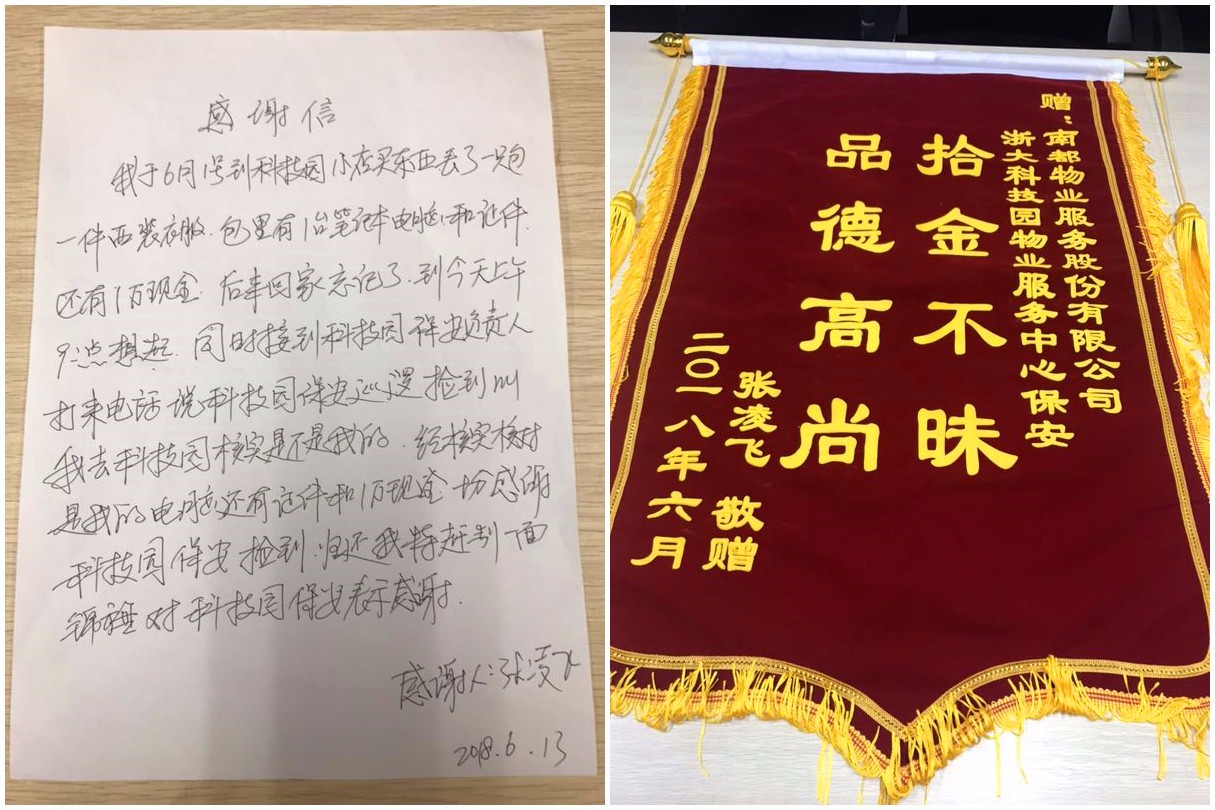 感谢信
我于6月1号到科技园小店买东西丢了一只包
一件西装衣服.包里有1台笔记本电脑和证件.
还有1万现金.后来回家忘记了.到今天上午
9:点想起.同时接到科技园保安负责人
打来电话说科技园保安巡逻捡到叫
我去科技园核实是不是我的.经核实核对
是我的电脑还有证件和1万现金.十分感谢
科技园保安捡到归还我特赶制一面
锦锤对科技园保安表示感谢.
感谢人:张凌飞
2018.6.13
赠：南都物业服务股份有限公司
浙大科技园物业服务中心保安
拾金不昧
品德高尚
张凌飞 敬赠
二〇一八年六月